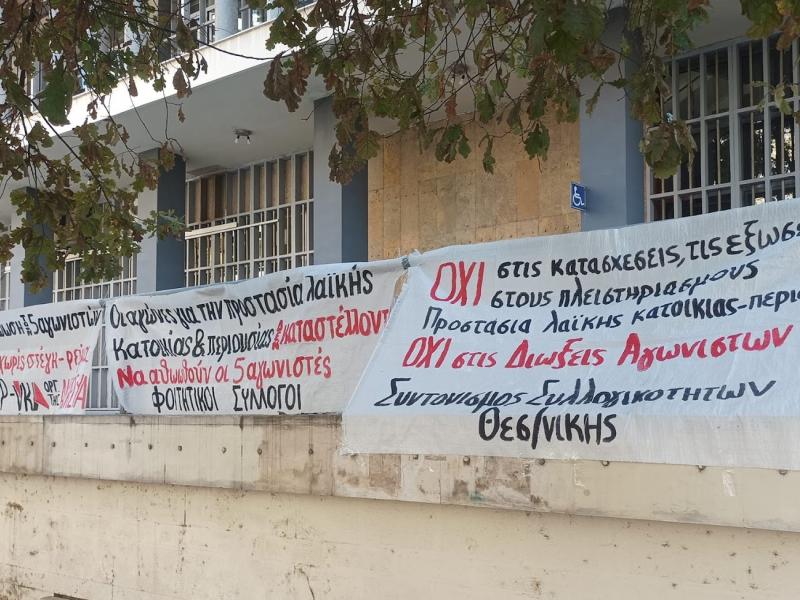 5αγωνιστών
χωρίς στέγη-ρεύμα
Οι αγώνες για την προστασία λαϊκής
Κατοικίας & περιουσίας δεν καταστέλλονται
Να αθωωθούν οι 5 αγωνιστές
ΦΟΙΤΗΤΙΚΟΙ ΣΥΛΛΟΓΟΙ
ΟΧΙ στις κατασχέσεις, τις εξώσε
στους πλειστηριασμους
Προστασία λαϊκής κατοικίας-περιο
ΟΧΙ στις Διωξεις Αγωνιστων
Συντονισμος Συλλογικοτητων
Θεσ/νικης